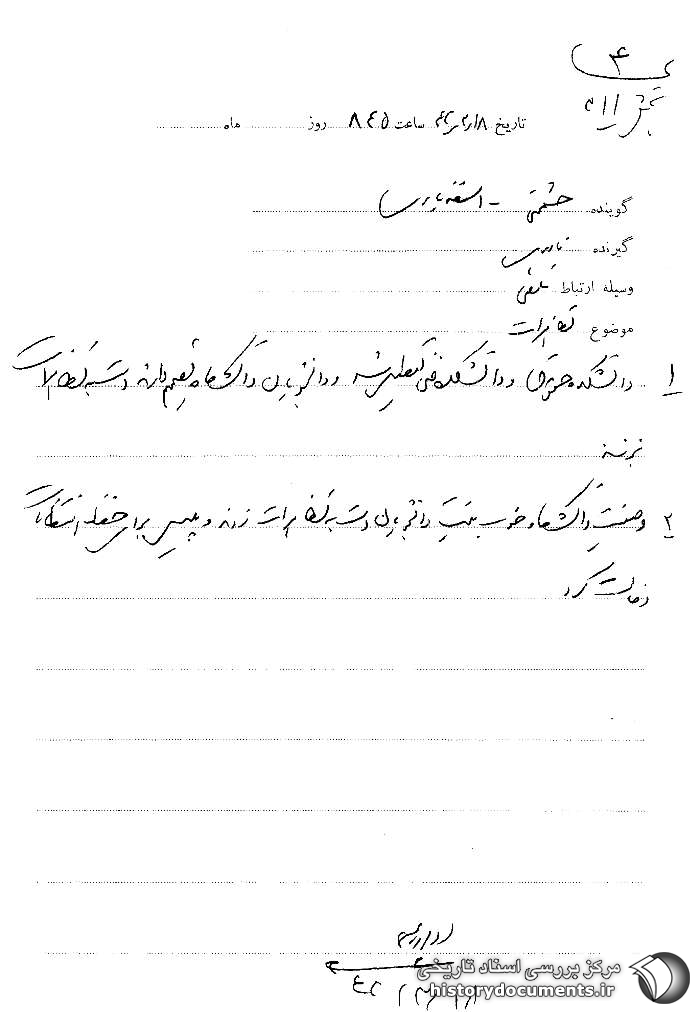 ۴
بخش ۳۱۱
تاریخ ۴۲/۲/۱۸ ساعت ۸۴۵ روز ماه
گوینده حشمتی -
گیرنده
وسیله ارتباط تلفنی
موضوع تظاهرات
۱ دانشکده حقوق و دانشکده فنی تعطیل شد و دانشجویان دانشگاه تصمیم دارند دست به تظاهرات
بزنند
۲ وضعیت دانشگاه خوب نیست دانشجویان دست به تظاهرات زدند و پلیس برای حفظ انتظامات
دخالت کرد
مرکز بررسی اسناد تاریخی
historydocuments.ir